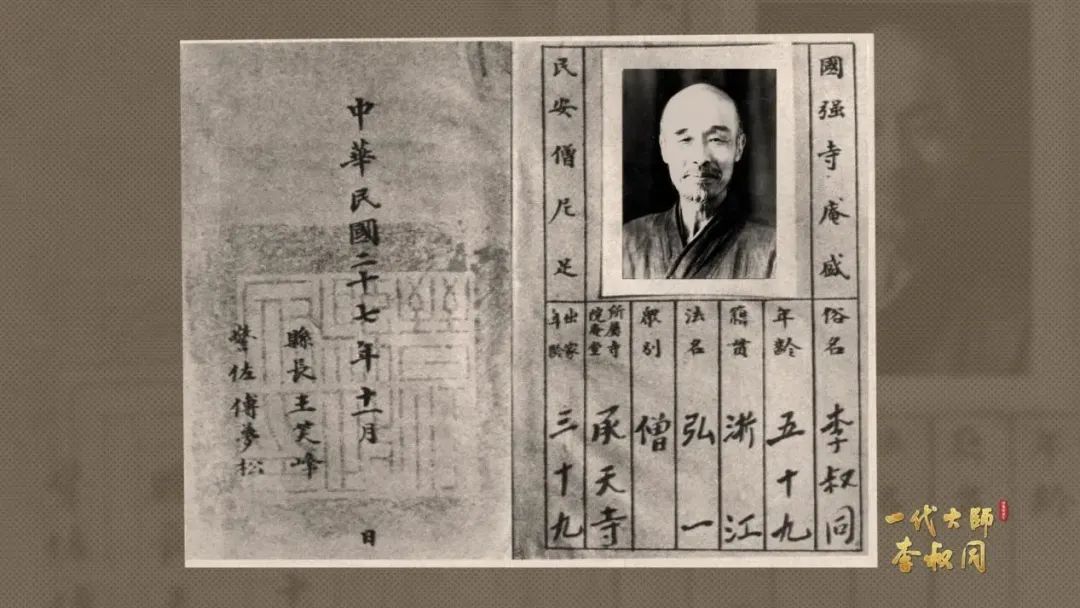 國强寺庵盛
民安僧尼足
俗名 李叔同
年齡 五十九
籍貫 浙江
法名 弘一
衆別 僧
所屬寺院菴堂 承天寺
出家年齡 三十九
中華民國二十七年十一月 日
縣長王笑峰
警佐傅夢松
一代大師
李叔同